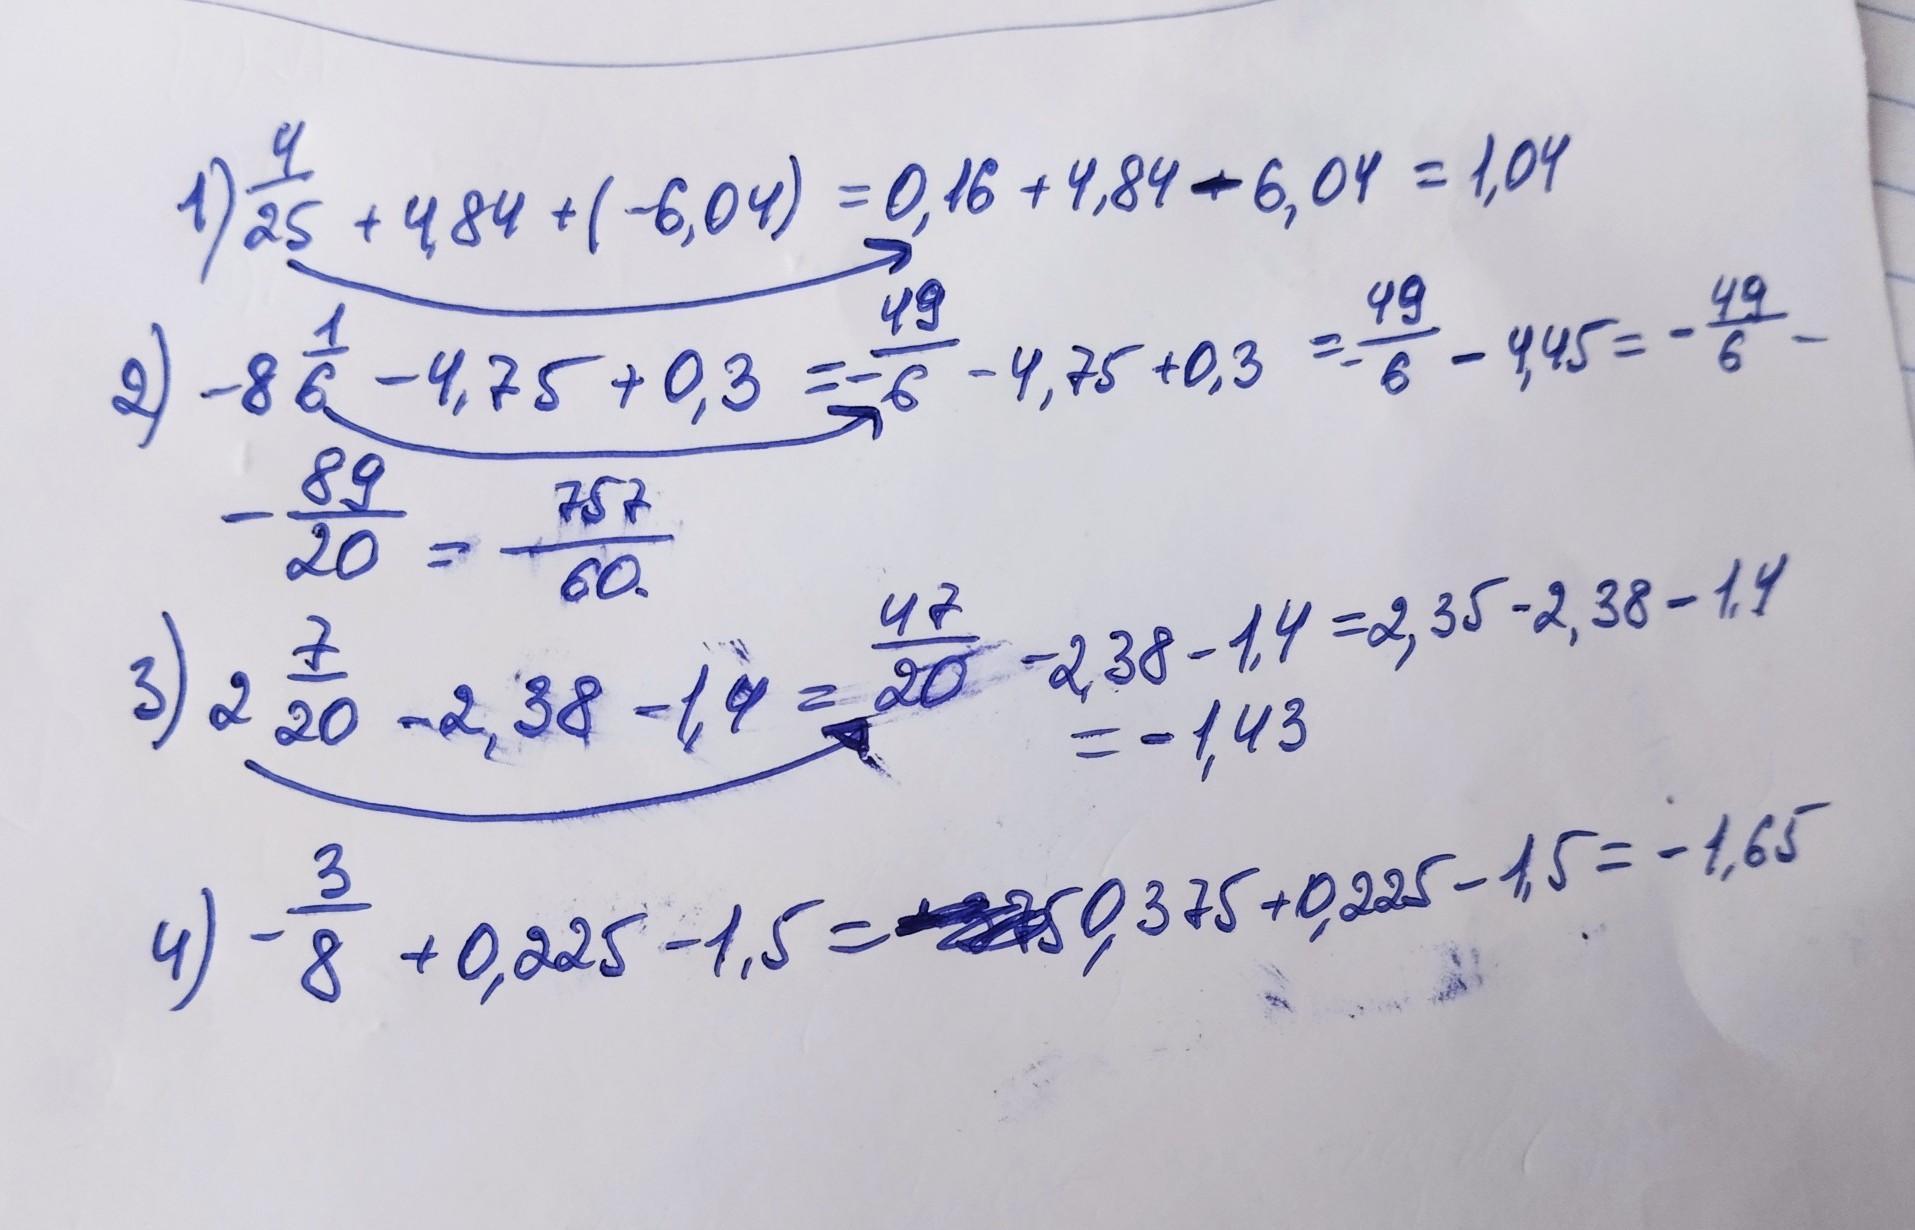 1) 4/25 + 4,84 + (-6,04) = 0,16 + 4,84 - 6,04 = 1,04
2) -8 1/6 - 4,75 + 0,3 = -49/6 - 4,75 + 0,3 = -49/6 - 4,45 = -49/6 -
- 89/20 = 757/60.
3) 2 7/20 - 2,38 - 1,4 = 47/20 - 2,38 - 1,4 = 2,35 - 2,38 - 1,4
= -1,43
4) -3/8 + 0,225 - 1,5 = 0,375 + 0,225 - 1,5 = -1,65